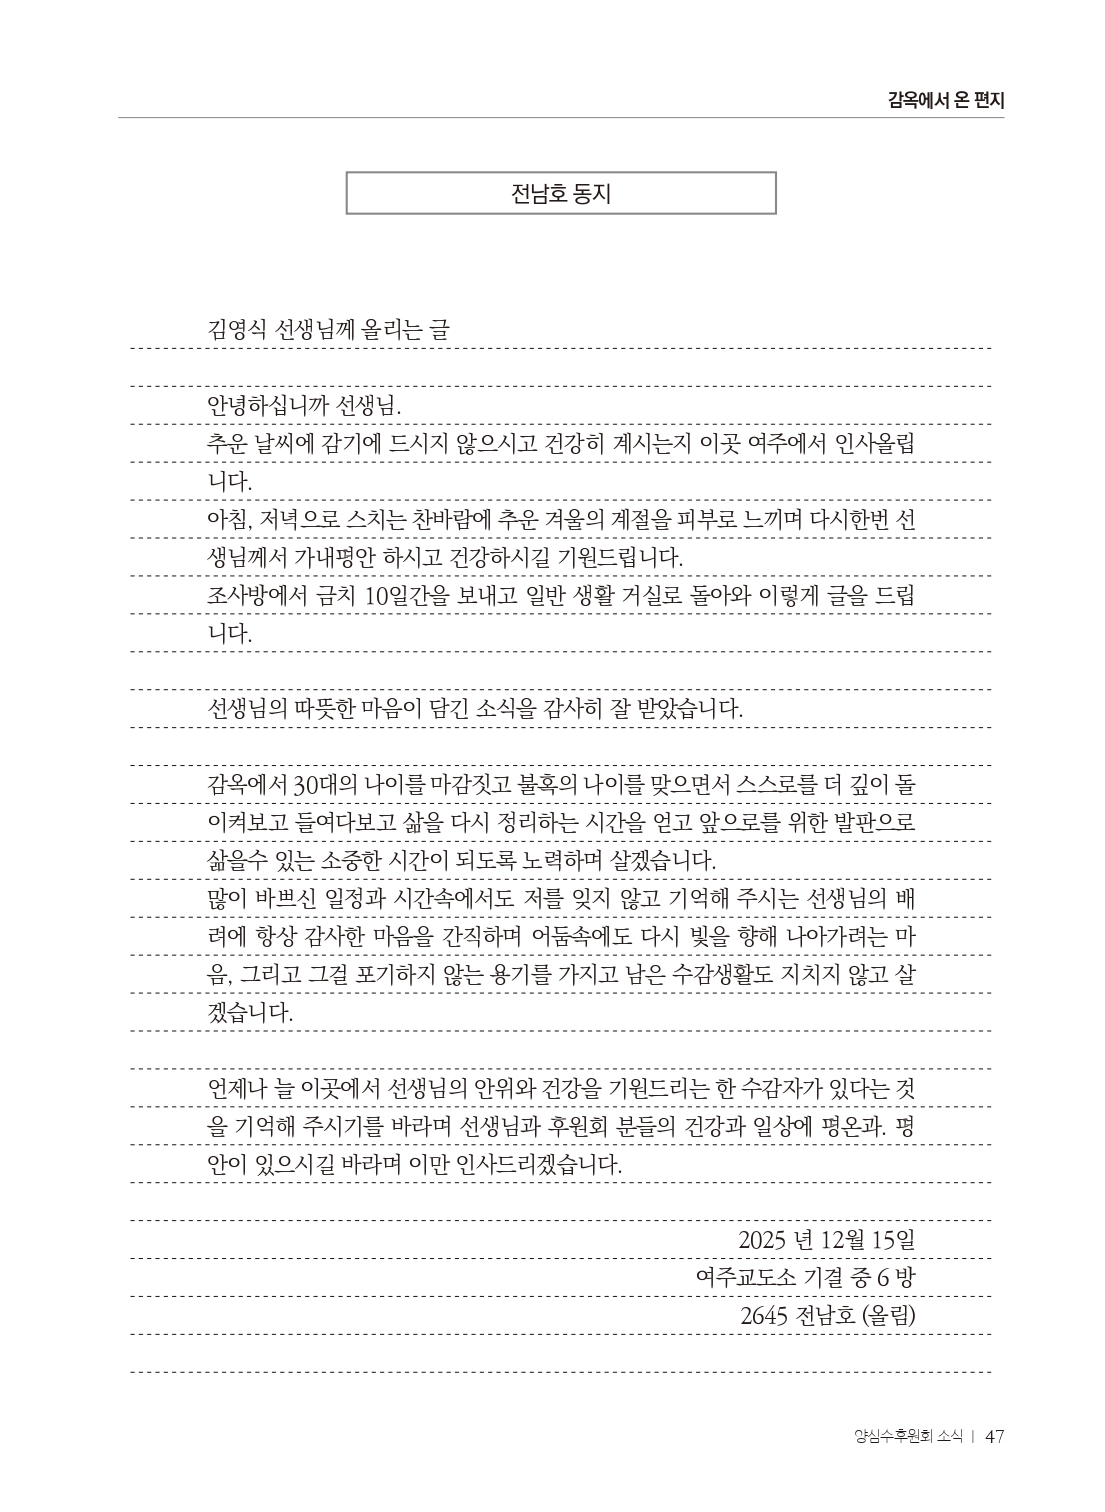 감옥에서 온 편지
전남호 동지
김영식 선생님께 올리는 글
안녕하십니까 선생님.
추운 날씨에 감기에 드시지 않으시고 건강히 계시는지 이곳 여주에서 인사올립
니다.
아침, 저녁으로 스치는 찬바람에 추운 겨울의 계절을 피부로 느끼며 다시한번 선
생님께서 가내평안 하시고 건강하시길 기원드립니다.
조사방에서 금치 10일간을 보내고 일반 생활 거실로 돌아와 이렇게 글을 드립
니다.
선생님의 따뜻한 마음이 담긴 소식을 감사히 잘 받았습니다.
감옥에서 30대의 나이를 마감짓고 불혹의 나이를 맞으면서 스스로를 더 깊이 돌
이켜보고 들여다보고 삶을 다시 정리하는 시간을 얻고 앞으로를 위한 발판으로
삶을수 있는 소중한 시간이 되도록 노력하며 살겠습니다.
많이 바쁘신 일정과 시간속에서도 저를 잊지 않고 기억해 주시는 선생님의 배
려에 항상 감사한 마음을 간직하며 어둠속에도 다시 빛을 향해 나아가려는 마
음, 그리고 그걸 포기하지 않는 용기를 가지고 남은 수감생활도 지치지 않고 살
겠습니다.
언제나 늘 이곳에서 선생님의 안위와 건강을 기원드리는 한 수감자가 있다는 것
을 기억해 주시기를 바라며 선생님과 후원회 분들의 건강과 일상에 평온과. 평
안이 있으시길 바라며 이만 인사드리겠습니다.
2025 년 12월 15일
여주교도소 기결 중 6 방
2645 전남호 (올림)
양심수후원회 소식 | 47